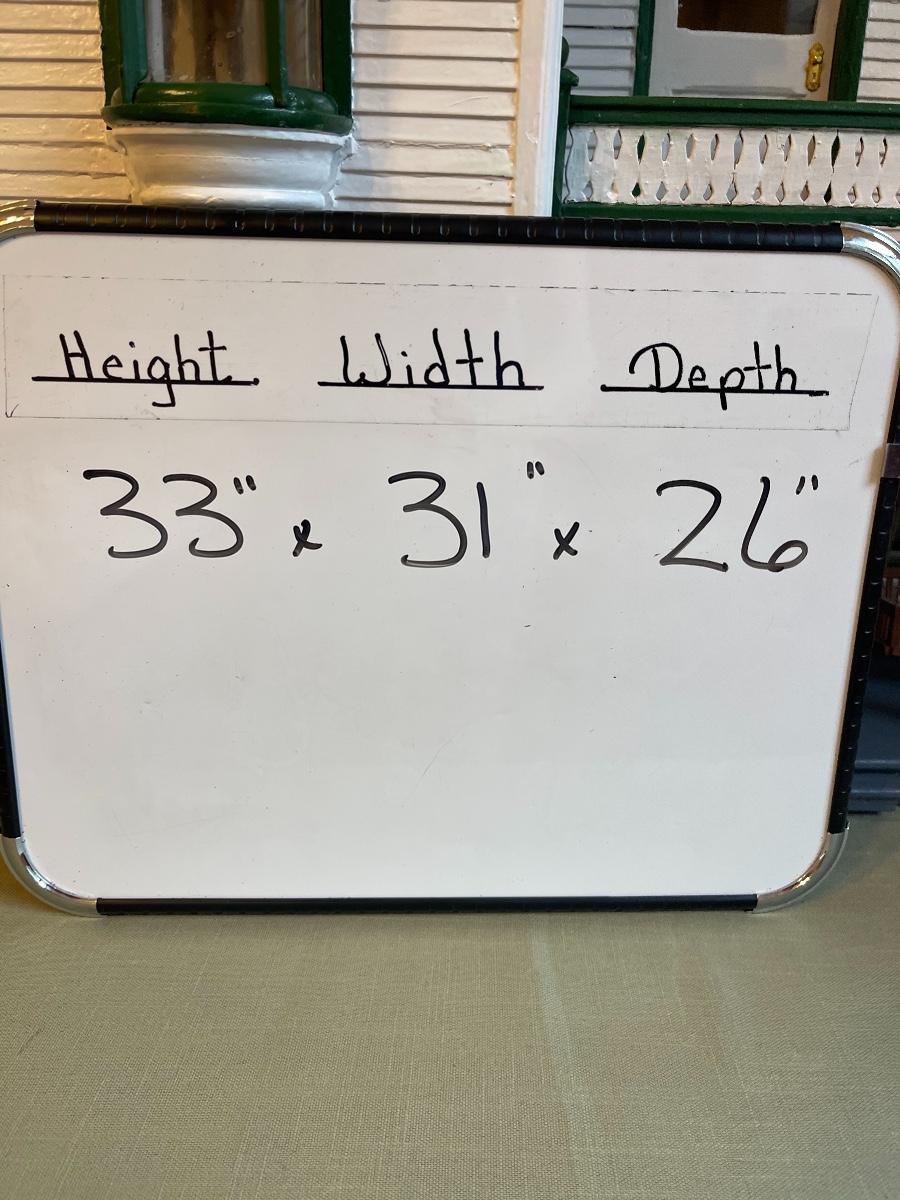 Height Width Depth
33" x 31" x 26"